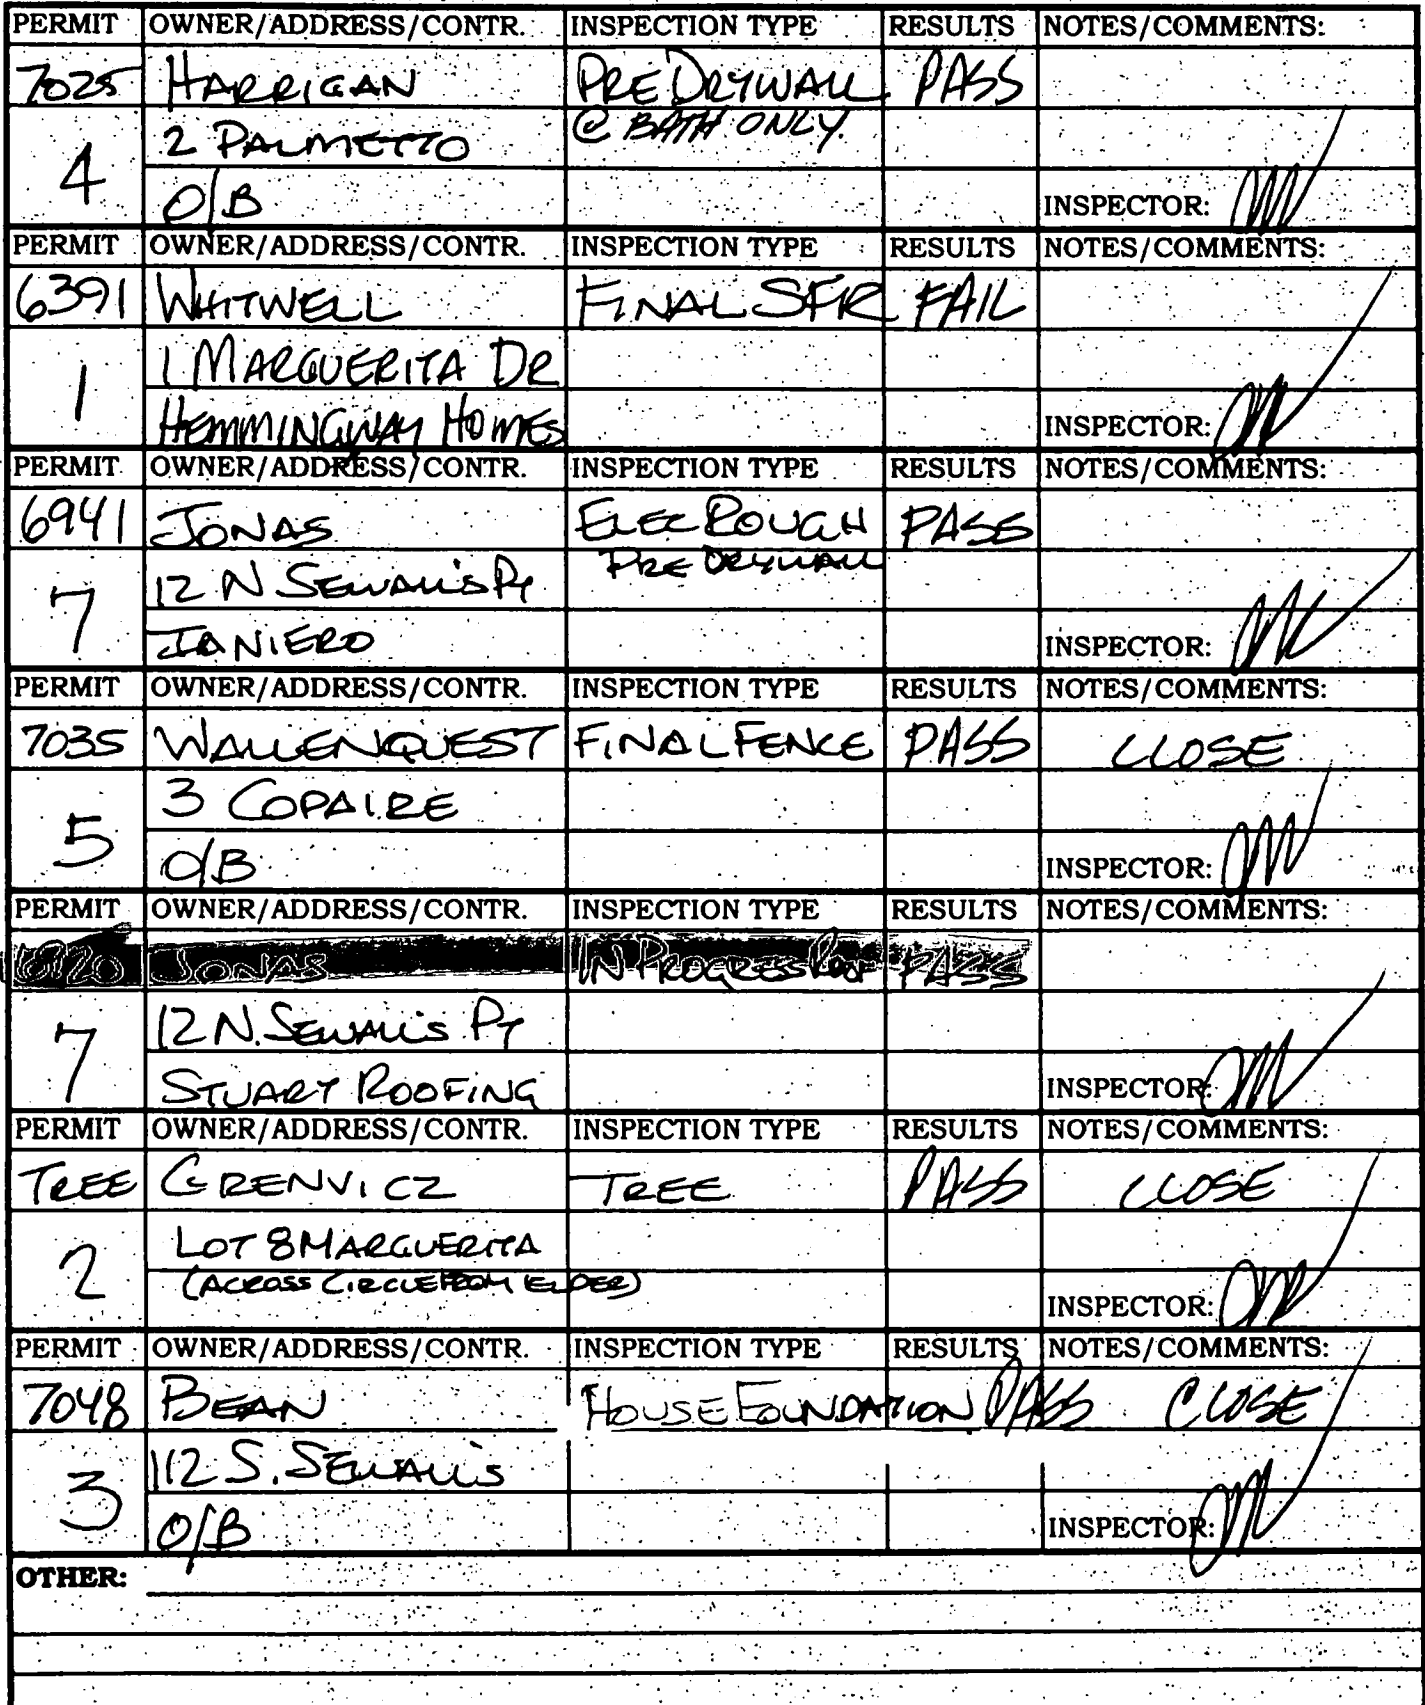 PERMIT OWNER/ADDRESS/CONTR. INSPECTION TYPE RESULTS NOTES/COMMENTS:
7025 HARRIGAN PRE DRYWALL PASS
4 2 PALMETTO @ BATH ONLY.
O/B INSPECTOR:
PERMIT OWNER/ADDRESS/CONTR. INSPECTION TYPE RESULTS NOTES/COMMENTS:
6391 WHITWELL FINAL SFR FAIL
1 1 MARGUERITA DR
HEMMINGWAY HOMES INSPECTOR:
PERMIT OWNER/ADDRESS/CONTR. INSPECTION TYPE RESULTS NOTES/COMMENTS:
6941 JONAS ELEC ROUGH PASS
7 12 N SEWALL'S PT PRE DRYWALL
JANIERO INSPECTOR:
PERMIT OWNER/ADDRESS/CONTR. INSPECTION TYPE RESULTS NOTES/COMMENTS:
7035 WALLENQUEST FINAL FENCE PASS CLOSE
5 3 COPAIRE
O/B INSPECTOR:
PERMIT OWNER/ADDRESS/CONTR. INSPECTION TYPE RESULTS NOTES/COMMENTS:
6920 JONAS IN PROGRESS ROOF PASS
7 12 N. SEWALL'S PT
STUART ROOFING INSPECTOR:
PERMIT OWNER/ADDRESS/CONTR. INSPECTION TYPE RESULTS NOTES/COMMENTS:
TREE GRENVICZ TREE PASS CLOSE
2 LOT 8 MARGUERITA
(ACROSS CIRCLE FROM ELDER) INSPECTOR:
PERMIT OWNER/ADDRESS/CONTR. INSPECTION TYPE RESULTS NOTES/COMMENTS:
7048 BEAN HOUSE FOUNDATION PASS CLOSE
3 112 S. SEWALL'S
O/B INSPECTOR:
OTHER: